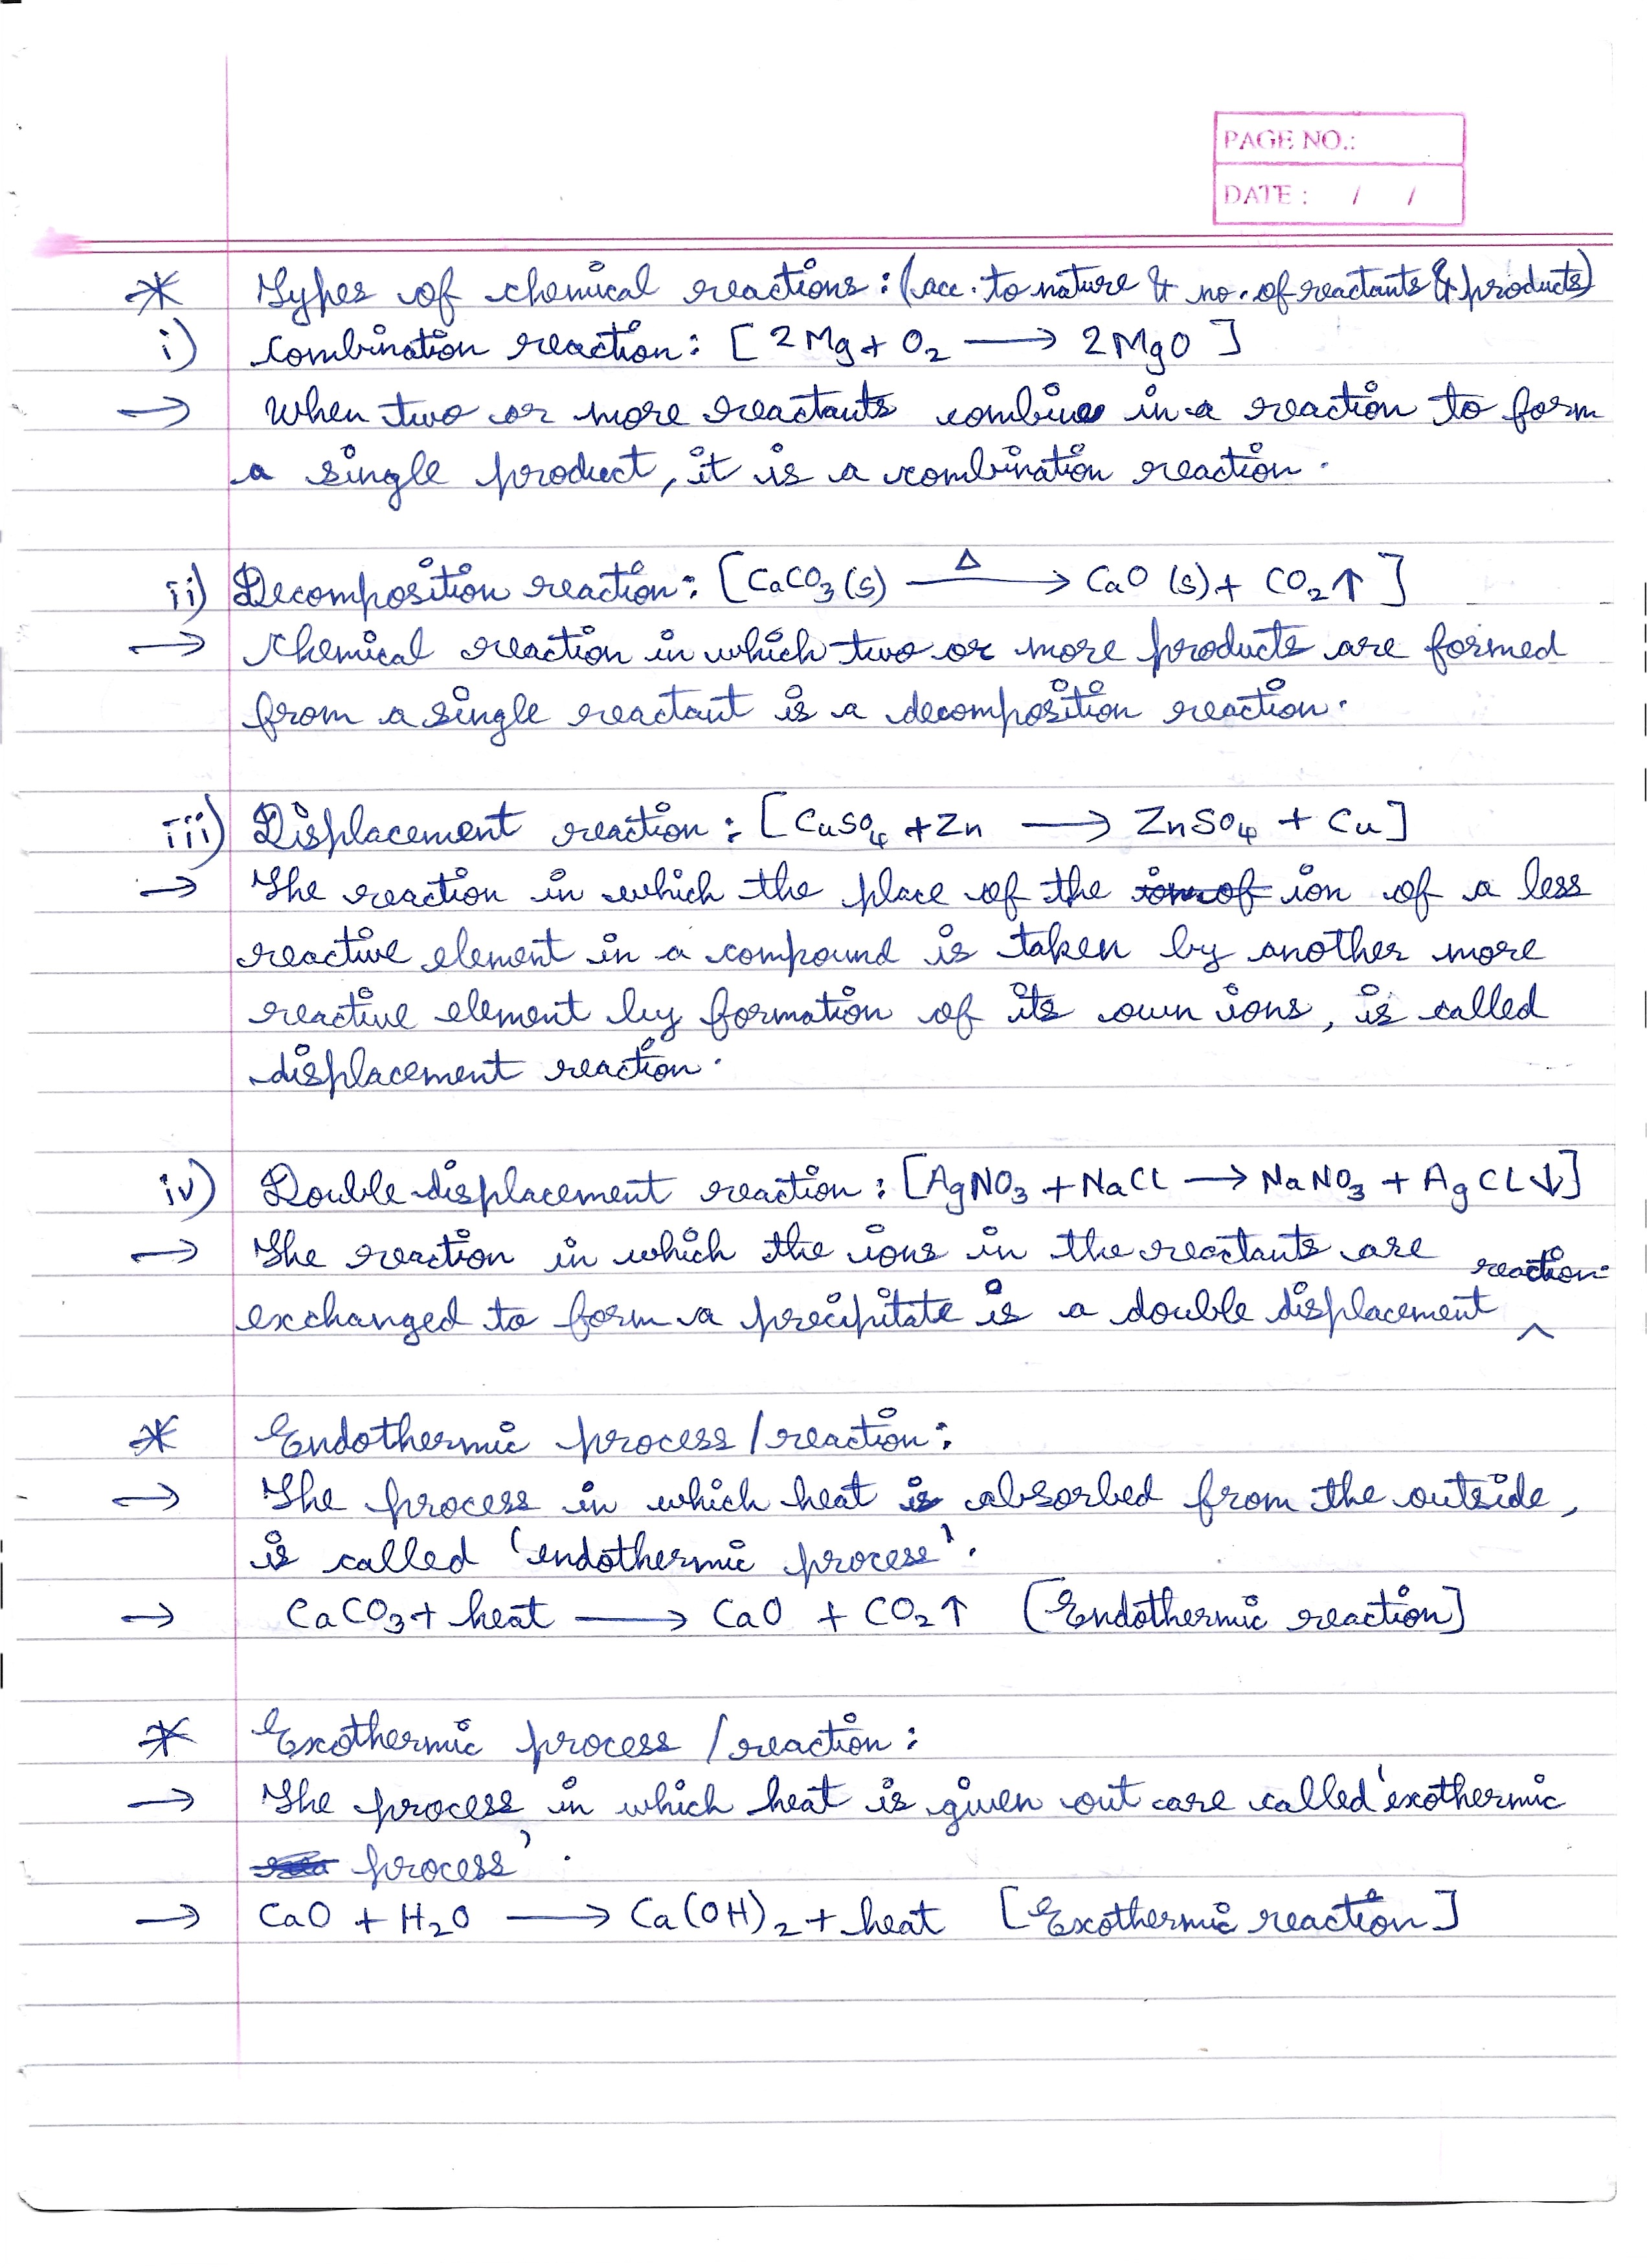 PAGE NO.:
DATE : / /
* Types of chemical reactions : (acc. to nature & no. of reactants & products)
i) Combination reaction : [ 2Mg + O₂ ⟶ 2MgO ]
→ When two or more reactants combine in a reaction to form
a single product, it is a combination reaction.
ii) Decomposition reaction : [CaCO₃(s) —Δ→ CaO (s) + CO₂↑ ]
→ Chemical reaction in which two or more products are formed
from a single reactant is a decomposition reaction.
iii) Displacement reaction : [CuSO₄ + Zn ⟶ ZnSO₄ + Cu]
→ The reaction in which the place of the ion of a less
reactive element in a compound is taken by another more
reactive element by formation of its own ions, is called
displacement reaction.
iv) Double displacement reaction : [AgNO₃ + NaCl → NaNO₃ + AgCl↓]
→ The reaction in which the ions in the reactants are
exchanged to form a precipitate is a double displacement reaction.
* Endothermic process / reaction :
→ The process in which heat is absorbed from the outside,
is called 'endothermic process'.
→ CaCO₃ + heat ⟶ CaO + CO₂↑ [Endothermic reaction]
* Exothermic process / reaction :
→ The process in which heat is given out are called 'exothermic
process'.
→ CaO + H₂O ⟶ Ca(OH)₂ + heat [Exothermic reaction]